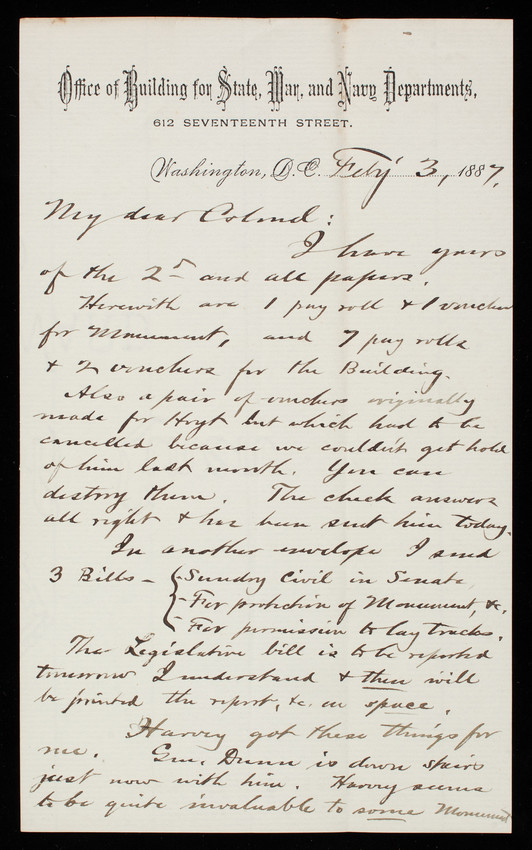 Office of Building for State, War, and Navy Departments,
612 SEVENTEENTH STREET.
Washington, D.C. Feby 3, 1887.
My dear Colonel:
I have yours
of the 2d and all papers.
Herewith are 1 pay roll & 1 voucher
for Monument, and 7 pay rolls
& 2 vouchers for the Building.
Also a pair of vouchers originally
made for Hoyt but which had to be
cancelled because we couldn't get hold
of him last month. You can
destroy them. The check answers
all right & has been sent him today.
In another envelope I send
3 Bills - { - Sundry Civil in Senate,
- For protection of Monument, &c.
- For permission to lay tracks.
The Legislative bill is to be reported
tomorrow I understand & then will
be printed the report, &c. in space.
Harvey got these things for
me. Gen. Dunn is down stairs
just now with him. Harvey seems
to be quite invaluable to some Monument